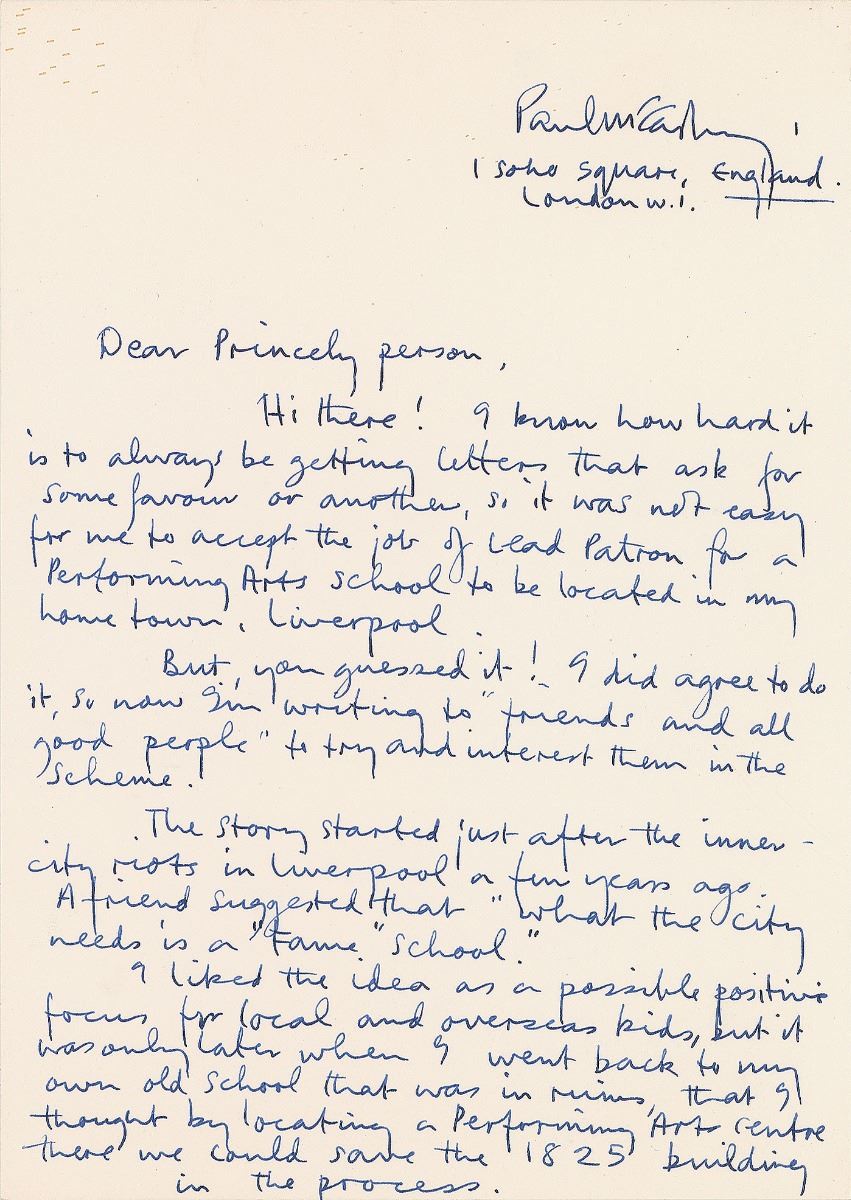 Paul McCartney
1 Soho Square, England.
London W.1.
Dear Princely person,
Hi there! I know how hard it
is to always be getting letters that ask for
some favour or another, so it was not easy
for me to accept the job of Lead Patron for a
Performing Arts School to be located in my
home town, Liverpool.
But, you guessed it! I did agree to do
it, so now I'm writing to "friends and all
good people" to try and interest them in the
scheme.
The story started just after the inner-
city riots in Liverpool a few years ago.
A friend suggested that "what the city
needs is a "Fame" School."
I liked the idea as a possible positive
focus for local and overseas kids, but it
was only later when I went back to my
own old school that was in ruins, that I
thought by locating a Performing Arts centre
there we could save the 1825 building
in the process.